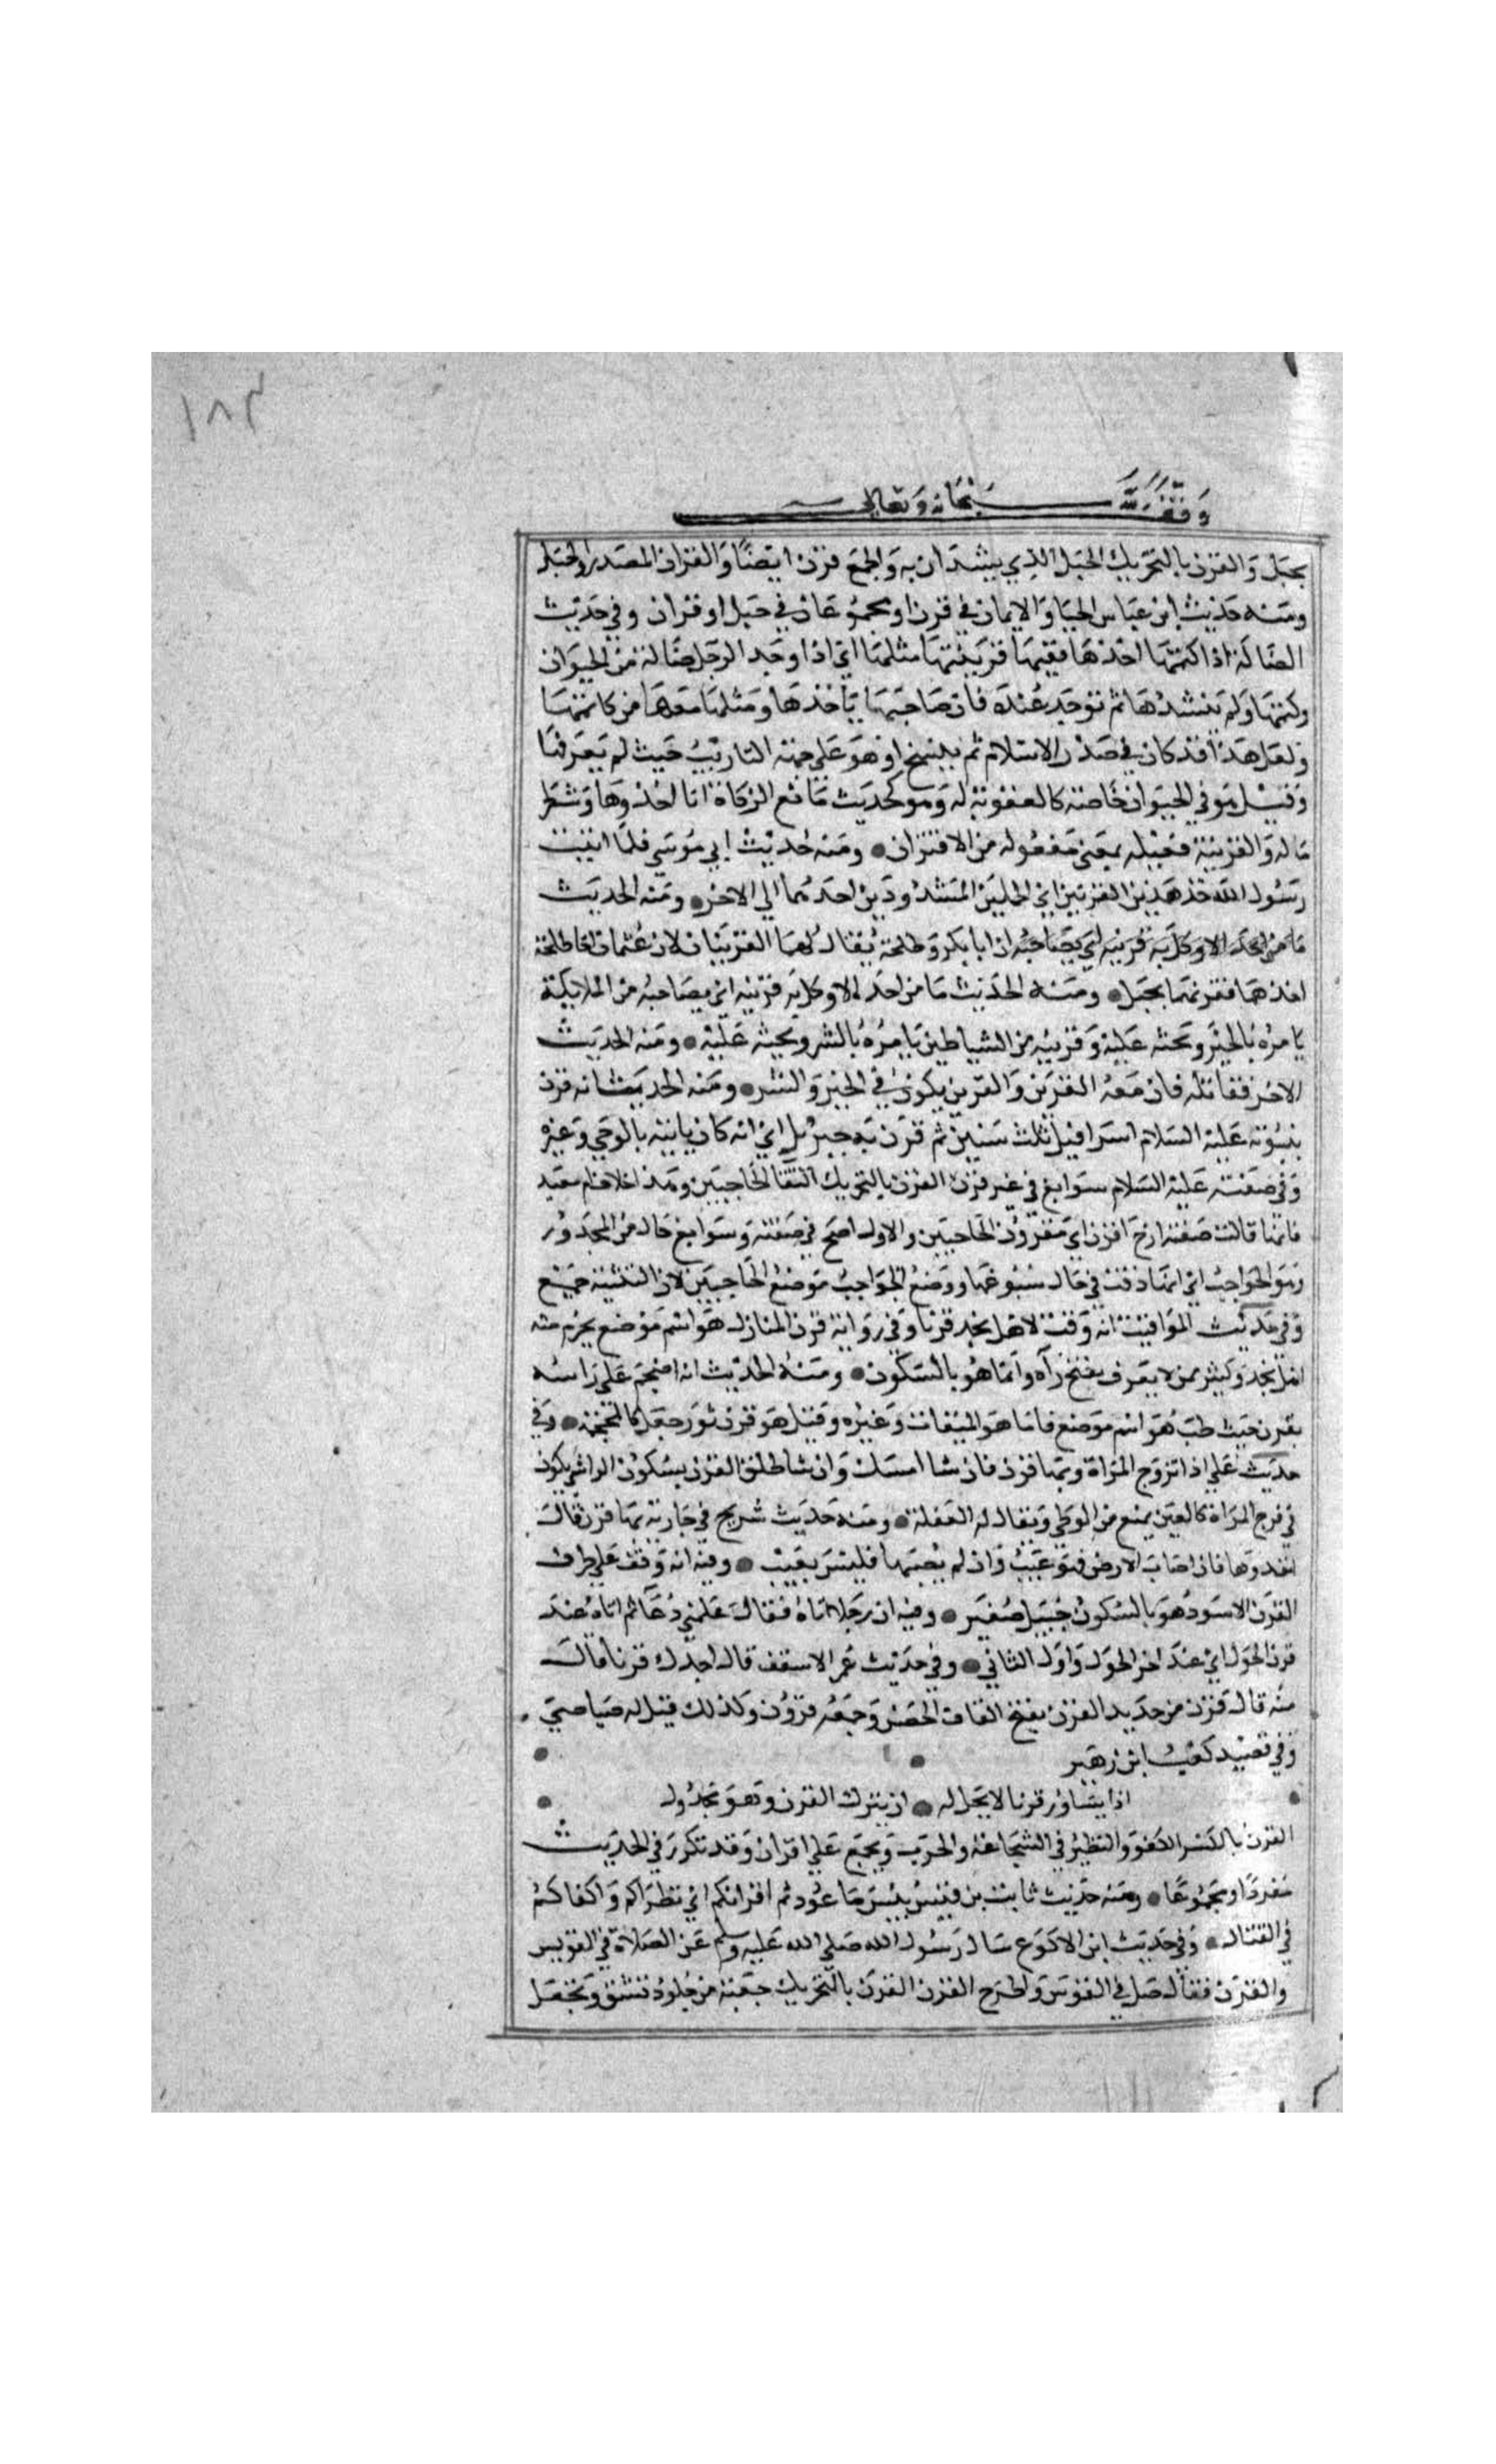 ١٨٣
وقف لله سبحانه وتعالى
بحبل والقرن بالتحريك الحبل الذي يشدان به والجمع قرن ايضا والقران المصدر والحبل
ومنه حديث ابن عباس الحيا والايمان في قرن او مجموعان في حبل او قران وفي حديث
الضالة اذا كتمتها احدها ففيها قرينتها مثلها اي اذا وجد الرجل ضالة من الحيوان
وكتمها ولم ينشدها ثم توجد عنده فان صاحبها ياخذها ومثلها معها من كاتمها
ولعل هذا قد كان في صدر الاسلام ثم نسخ او هو على جهة التاديب حيث لم يعرفها
وقيل هو في الحيوان خاصة كالعقوبة له وهو كحديث مانع الزكاة انا اخذوها وشطر
ماله والقرينة فعيلة بمعنى مفعولة من الاقتران ومنه حديث ابي موسى فلما اتيت
رسول الله خذ هذين القرينين اي الجملين المشدودين احدهما الي الاخر ومنه الحديث
ما من احد الا وكل به قرينه اي يصاحبه ان ابا بكر وطلحة يقال لهما القرينان لان عثمان اخا طلحة
اخذهما فقرنهما بحبل ومنه الحديث ما من احد الا وكل به قرينه اي مصاحبه من الملايكة
يامره بالخير ويحثه عليه وقرينه من الشياطين يامره بالشر ويحثه عليه ومنه الحديث
الاخر فقاتله فان معه القرين والقرين يكون في الخير والشر ومنه الحديث انه قرن
بنبوته عليه السلام اسرافيل ثلث سنين ثم قرن به جبريل اي انه كان ياتيه بالوحي وغيره
وفي صفته عليه السلام سوابغ في غير قرن القرن بالتحريك التقا الحاجبين وهذا خلاف ام معبد
فانها قالت صفته ازج اقرن اي مقرون الحاجبين والاول اصح في صفته وسوابغ حال من المجرور
وهو الحواجب اي انها دقت في حال سبوغها ووضع الحواجب موضع الحاجبين لان التثنية جمع
وفي حديث المواقيت انه وقت لاهل نجد قرنا وفي رواية قرن المنازل هو اسم موضع يحرم منه
اهل نجد وكثير ممن لا يعرف يفتح رآه وانما هو بالسكون ومنه الحديث انه احتجم علي راسه
بقرن حيث طب هو اسم موضع فاما هو الميقات وغيره وقيل هو قرن ثور جعل كالمحجمة وفي
حديث علي اذا تزوج المراة وبها قرن فان شا امسك وان شا طلق القرن بسكون الراشي يكون
في فرج المراة كالعين يمنع من الوطي ويقال له العفلة ومنه حديث شريح في جارية بها قرن قال
اقعدوها فان اصاب الارض فهو عيب وان لم يصبها فليس بعيب وفيه انه وقف علي طرف
القرن الاسود هو بالسكون جبيل صغير وفيه ان رجلا اتاه فقال علمني دعا ثم اتاه عند
قرن الحول اي عند اخر الحول واول الثاني وفي حديث عمر الاسقف قال اجدك قرنا قال
منه قال قرن من حديد القرن بفتح القاف الحصن وجمعه قرون وكذلك قيل له صياصي
وفي قصيد كعب ابن زهير
اذا يساور قرنا لا يحل له ان يترك القرن وهو مجدول
القرن بالكسر الكفو والنظير في الشجاعة والحرب ويجمع علي اقران وقد تكرر في الحديث
مفردا او مجموعا ومنه حديث ثابت بن قيس بيس ما عودتم اقرانكم اي نظراكم واكفاكم
في القتال وفي حديث ابن الاكوع سال رسول الله صلي الله عليه وسلم عن الصلاة في القوس
والقرن فقال صل في القوس واطرح القرن القرن بالتحريك جعبة من جلود تشق وتجعل